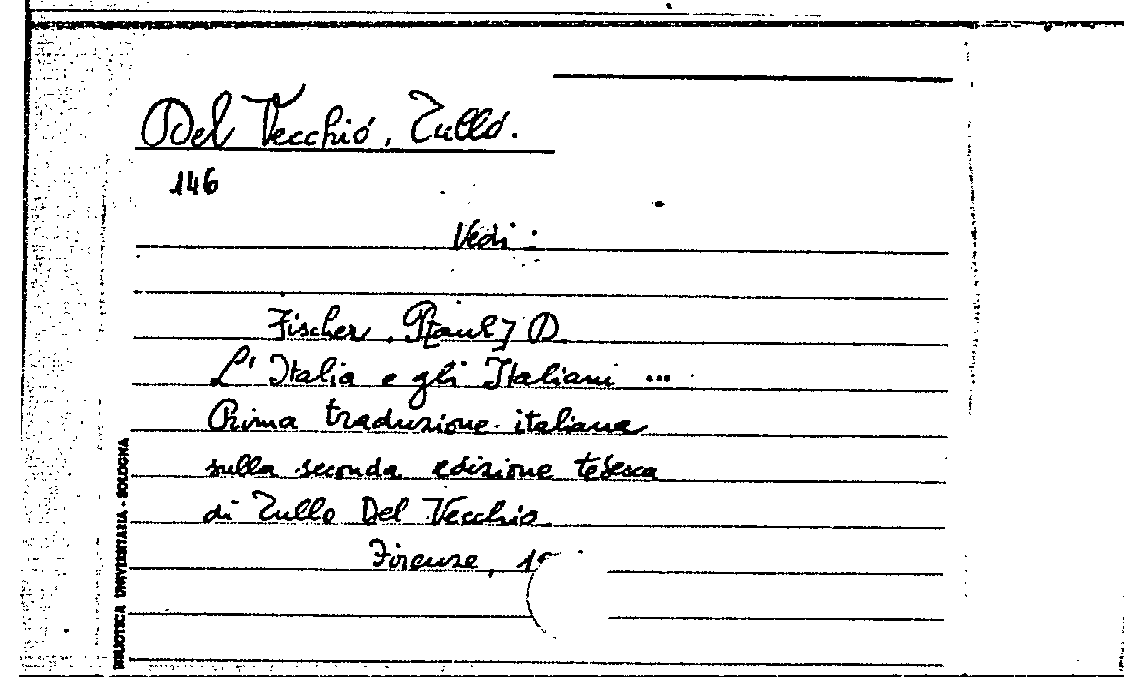 Del Vecchio, Tullo.
146
Vedi:
Fischer, P[aul] D.
L'Italia e gli Italiani ...
Prima traduzione italiana
sulla seconda edizione tedesca
di Tullo Del Vecchio
Firenze,
BIBLIOTECA UNIVERSITARIA - BOLOGNA